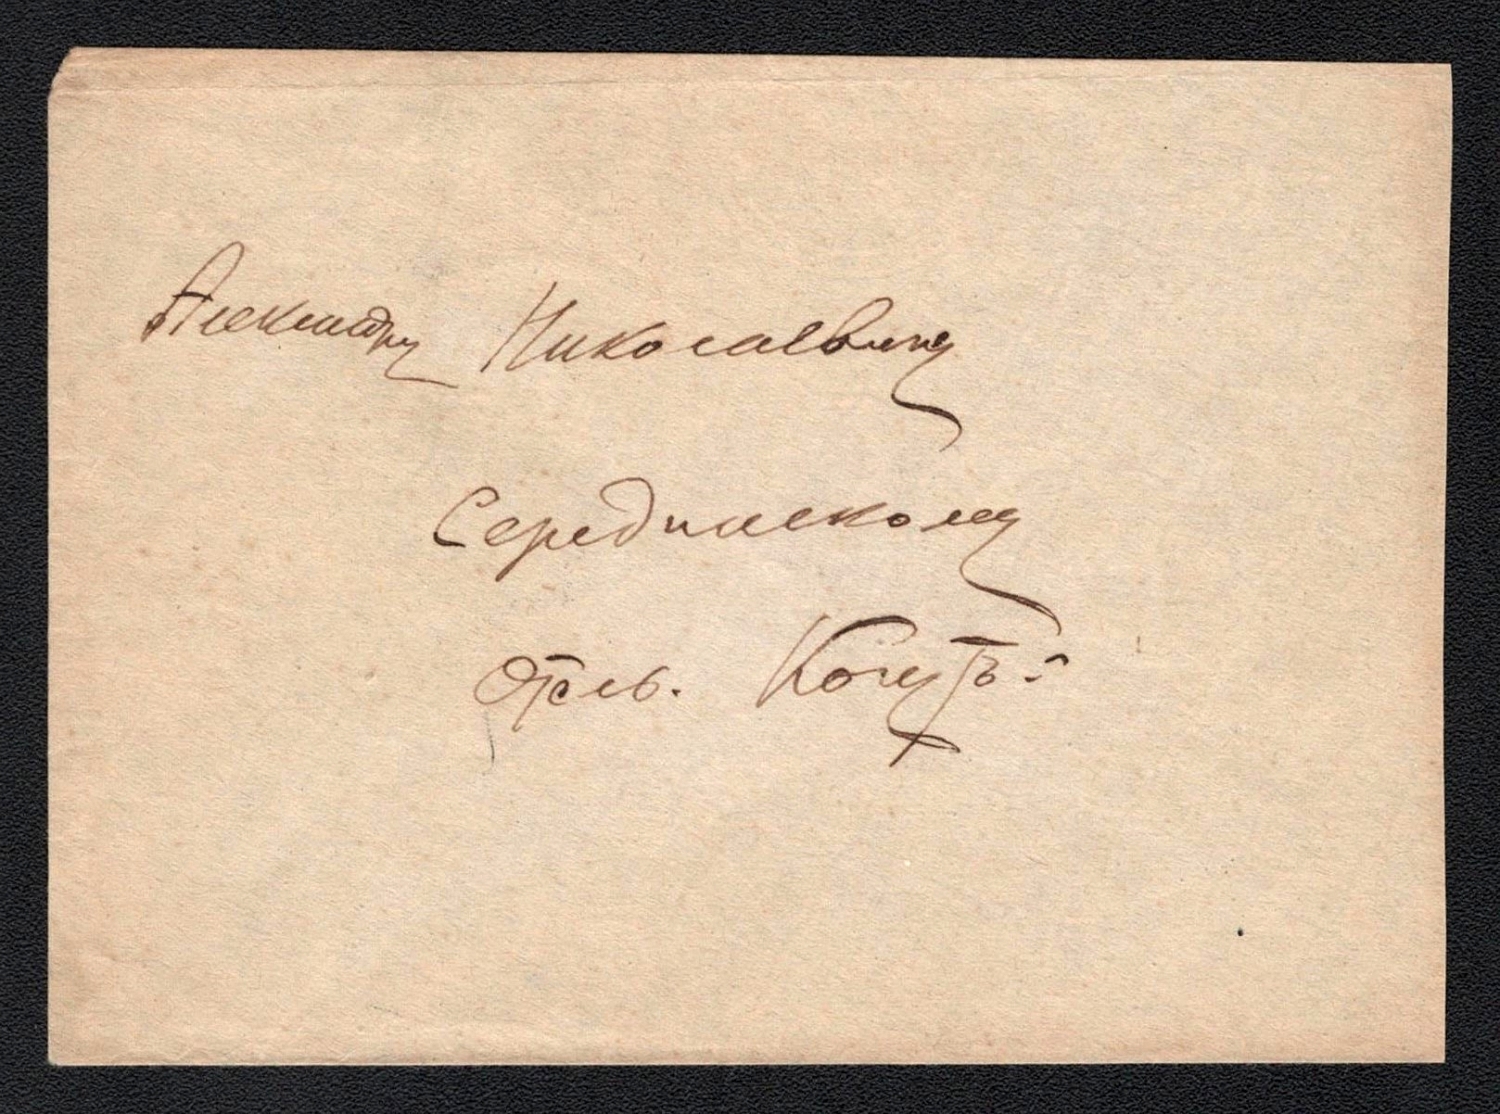 Александру Николаевичу
Серединскому
Отель. Когутъ.